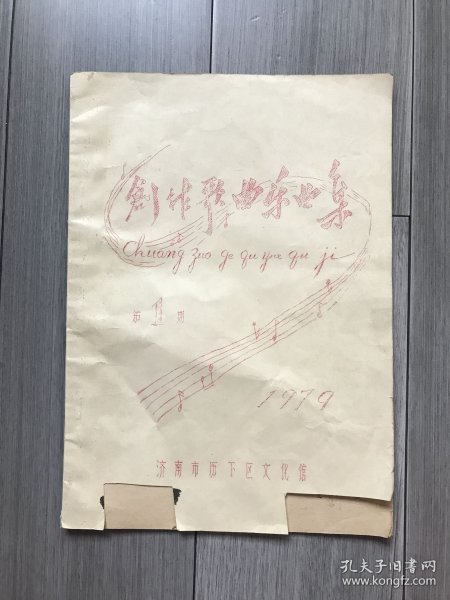 创作歌曲乐曲集
Chuang zuo ge qu yue qu ji
第1期
1979
济南市历下区文化馆
孔夫子旧书网
www.kongfz.com